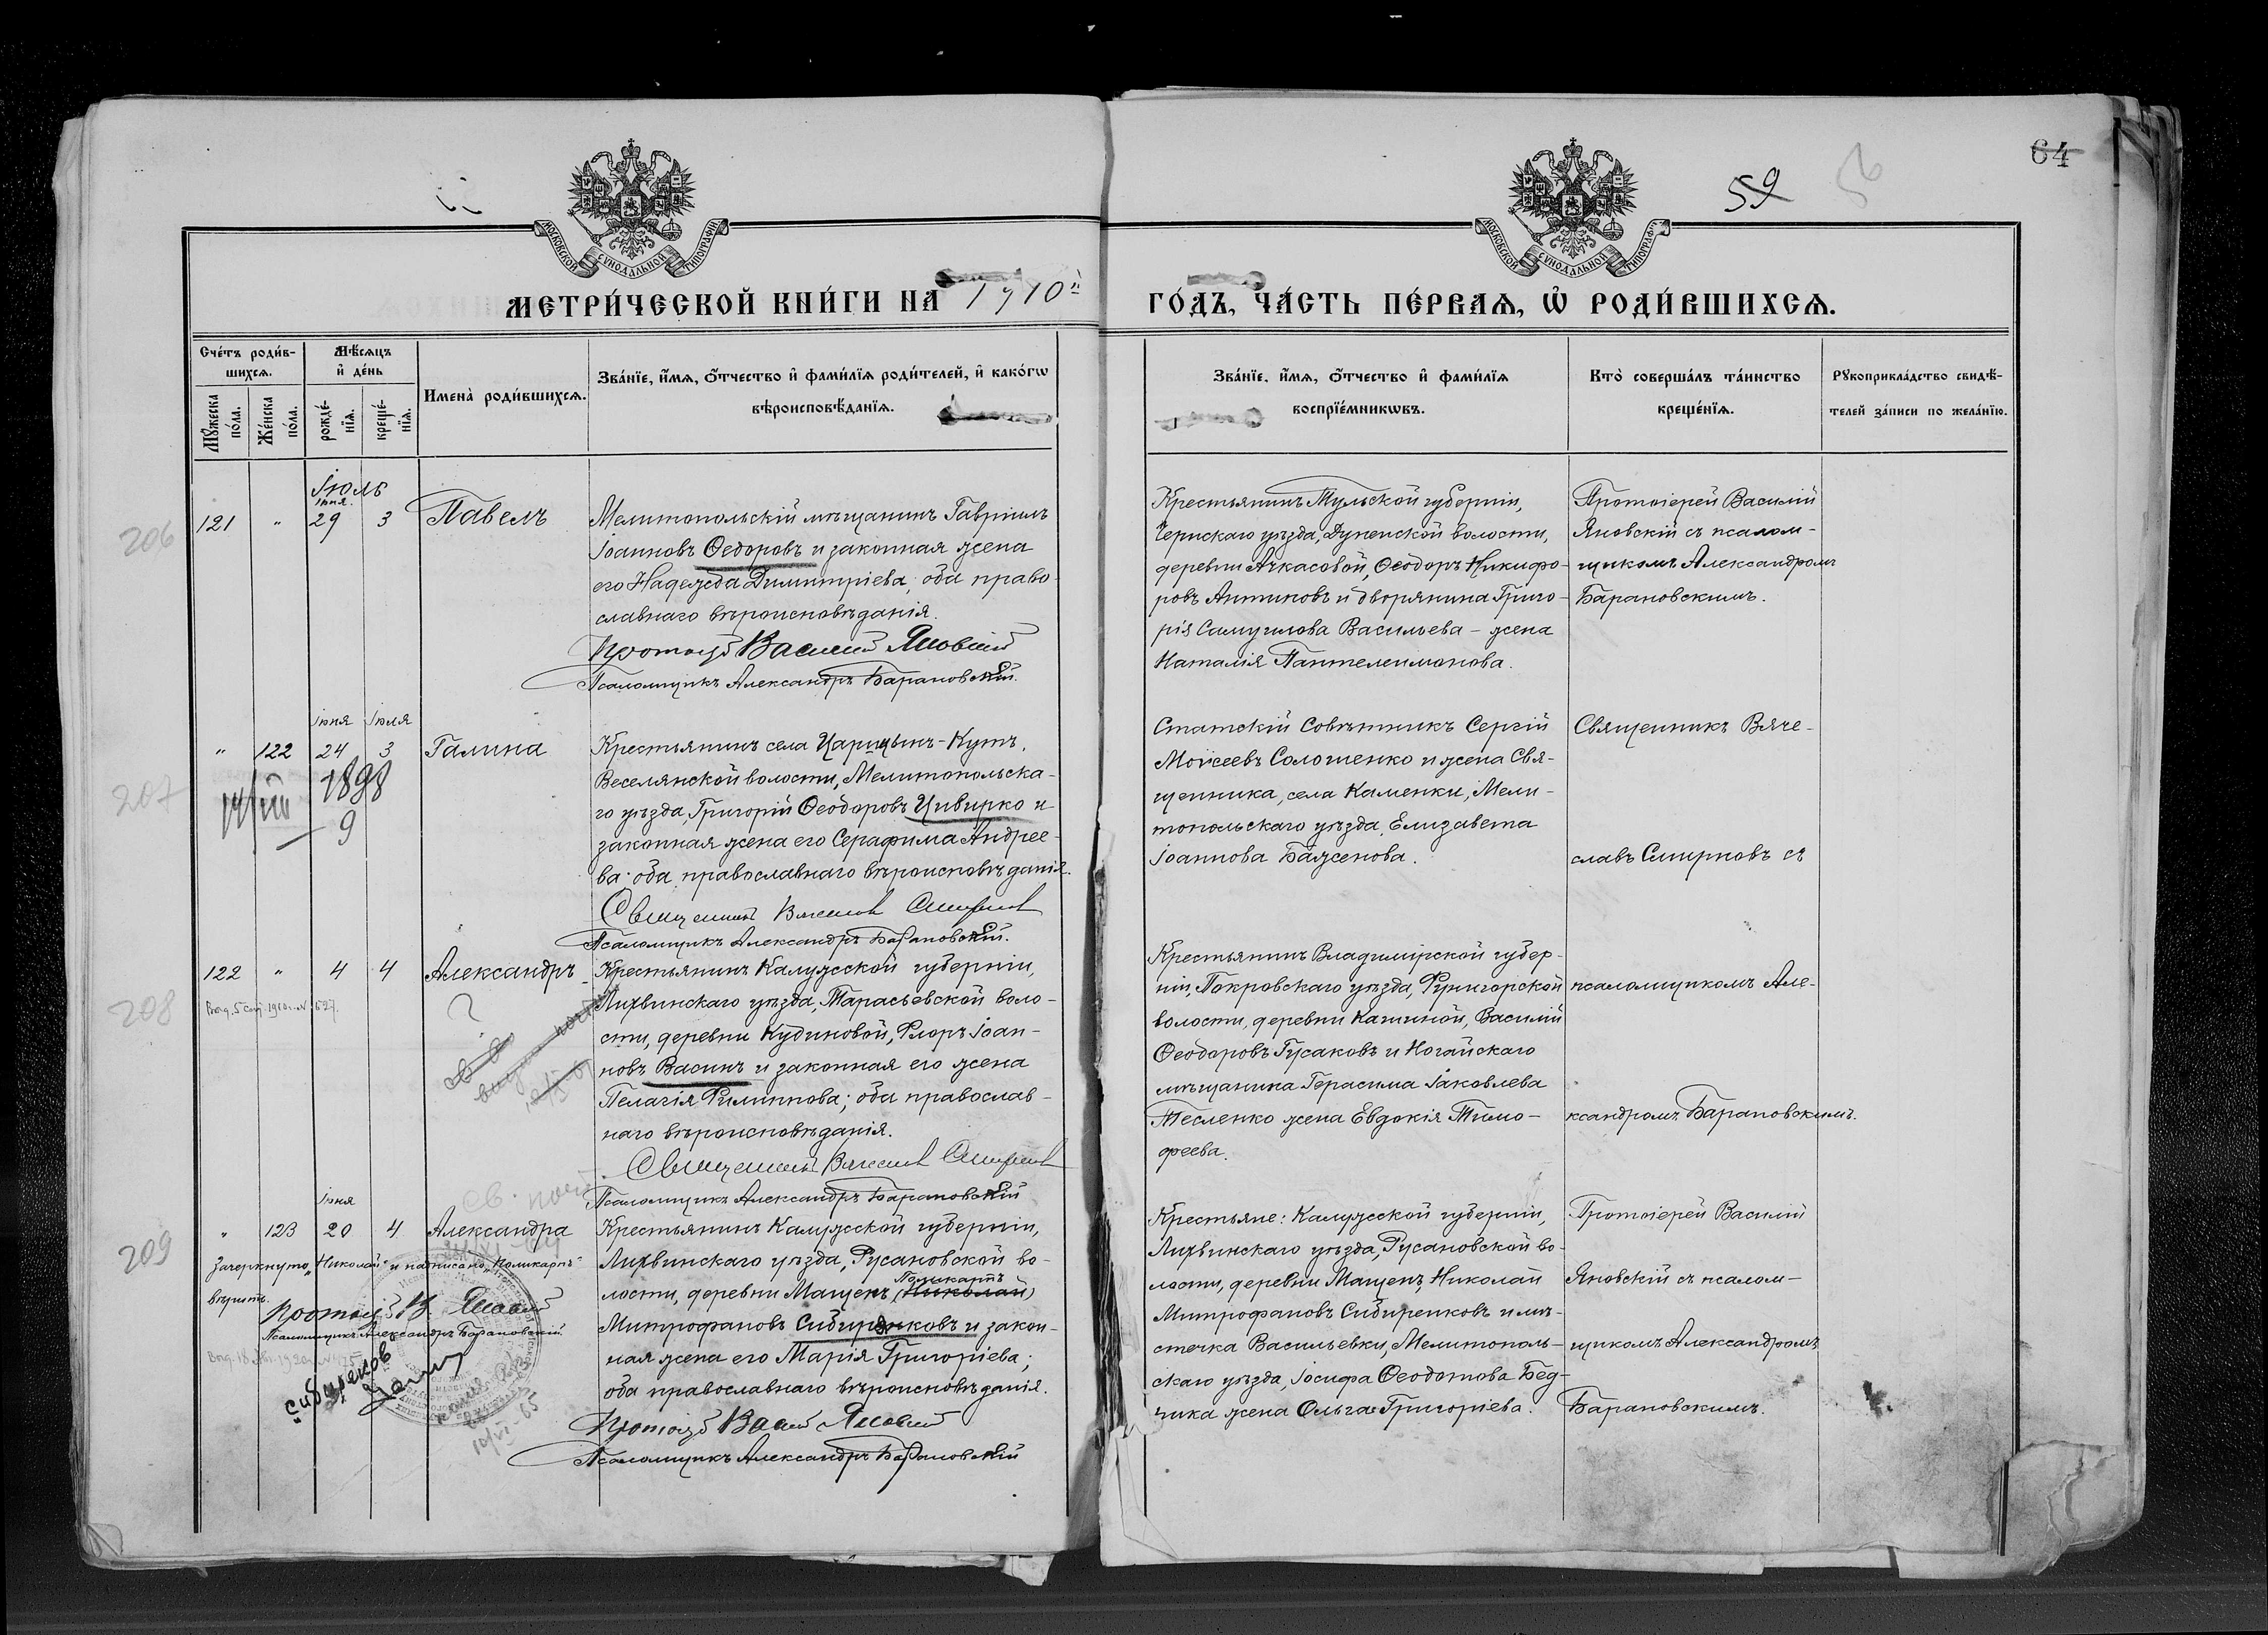 64
59
56
МОСКОВСКОЙ СѴНОДАЛЬНОЙ ТИПОГРАФІИ
МОСКОВСКОЙ СѴНОДАЛЬНОЙ ТИПОГРАФІИ
МЕТРИ́ЧЕСКОЙ КНИ́ГИ НА 1910й
ГО́ДЪ, ЧА́СТЬ ПЕ́РВАѦ, Ѡ҆ РОДИ́ВШИХСѦ.
Сче́тъ роди́в-
шихсѧ.
Мꙋ́жеска по́ла.
Же́нска по́ла.
Мѣ́сѧцъ
и҆ де́нь
рожде́-
нїѧ.
креще́-
нїѧ.
Имена̀ роди́вшихсѧ.
Зва́нїе, и҆́мѧ, ѻ҆́тчество и҆ фами́лїѧ роди́телей, и҆ како́гѡ
вѣроисповѣ́данїѧ.
Зва́нїе, и҆́мѧ, ѻ҆́тчество и҆ фами́лїѧ
воспрїе́мникѡвъ.
Кто̀ соверша́лъ та́инство
креще́нїѧ.
Рꙋкоприкла́дство свидѣ́-
телей за́писи по жела́нїю.
Іюль
іюня.
206
121 " 29 3 Павелъ
Мелитопольскій мѣщанинъ Гавріилъ
Іоанновъ Ѳедоровъ и законная жена
его Надежда Димитріева; оба право-
славнаго вѣроисповѣданія.
Протоіер Василій Яновскій
Псаломщикъ Александръ Барановскій.
Крестьянинъ Тульской губерніи,
Чернскаго уѣзда, Дупенской волости,
деревни Ачкасовой, Ѳеодоръ Никифо-
ровъ Антиповъ и дворянина Григо-
рія Самуилова Васильева - жена
Наталія Пантелеимонова.
Протоіерей Василій
Яновскій съ псалом-
щикомъ Александромъ
Барановскимъ.
Іюня Іюля
207
" 122 24 3 Галина
1898
9
Крестьянинъ села Царицынъ-Кутъ,
Веселянской волости, Мелитопольска-
го уѣзда, Григорій Ѳеодоровъ Цивирко и
законная жена его Серафима Андрее-
ва; оба православнаго вѣроисповѣданія.
Священникъ Вячеслав Смирнов
Псаломщикъ Александръ Барановскій.
Статскій Совѣтникъ Сергій
Моисеевъ Солошенко и жена Свя-
щенника, села Каменки, Мели-
топольскаго уѣзда, Елизавета
Іоаннова Баженова.
Священникъ Вяче-
славъ Смирновъ съ
208
122 " 4 4 Александръ
Крестьянинъ Калужской губерніи,
Лихвинскаго уѣзда, Тарасьевской воло-
сти, деревни Кудиновой, Флоръ Іоан-
новъ Васинъ и законная его жена
Пелагія Филиппова; оба православ-
наго вѣроисповѣданія.
Священникъ Вячеслав Смирнов
Псаломщикъ Александръ Барановскій
Крестьянинъ Владимірской губер-
ніи, Покровскаго уѣзда, Фуникорской
волости, деревни Кашиной, Василій
Ѳеодоровъ Гусаковъ и Ногайскаго
мѣщанина Герасима Іаковлева
Тесленко жена Евдокія Тимо-
феева.
псаломщикомъ Але-
ксандромъ Барановскимъ.
Іюня
209
" 123 20 4 Александра
Зачеркнуто „Николай" и надписано „Поликарпъ"
вѣрить.
Протоіер В. Яновскій
Псаломщикъ Александръ Барановскій.
Сибиренков
10/VI-65
Крестьянинъ Калужской губерніи,
Лихвинскаго уѣзда, Русановской во-
Поликарпъ
лости, деревни Мащенъ, (Николай)
Митрофановъ Сибиренковъ и закон-
ная жена его Марія Григоріева;
оба православнаго вѣроисповѣданія.
Протоіер Васил Яновскій
Псаломщикъ Александръ Барановскій
Крестьяне: Калужской губерніи,
Лихвинскаго уѣзда, Русановской во-
лости, деревни Мащенъ, Николай
Митрофановъ Сибиренковъ и мѣ-
стечка Васильевки, Мелитополь-
скаго уѣзда, Іосифа Ѳеодотова Бед-
чика жена Ольга Григоріева.
Протоіерей Василій
Яновскій съ псалом-
щикомъ Александромъ
Барановскимъ.